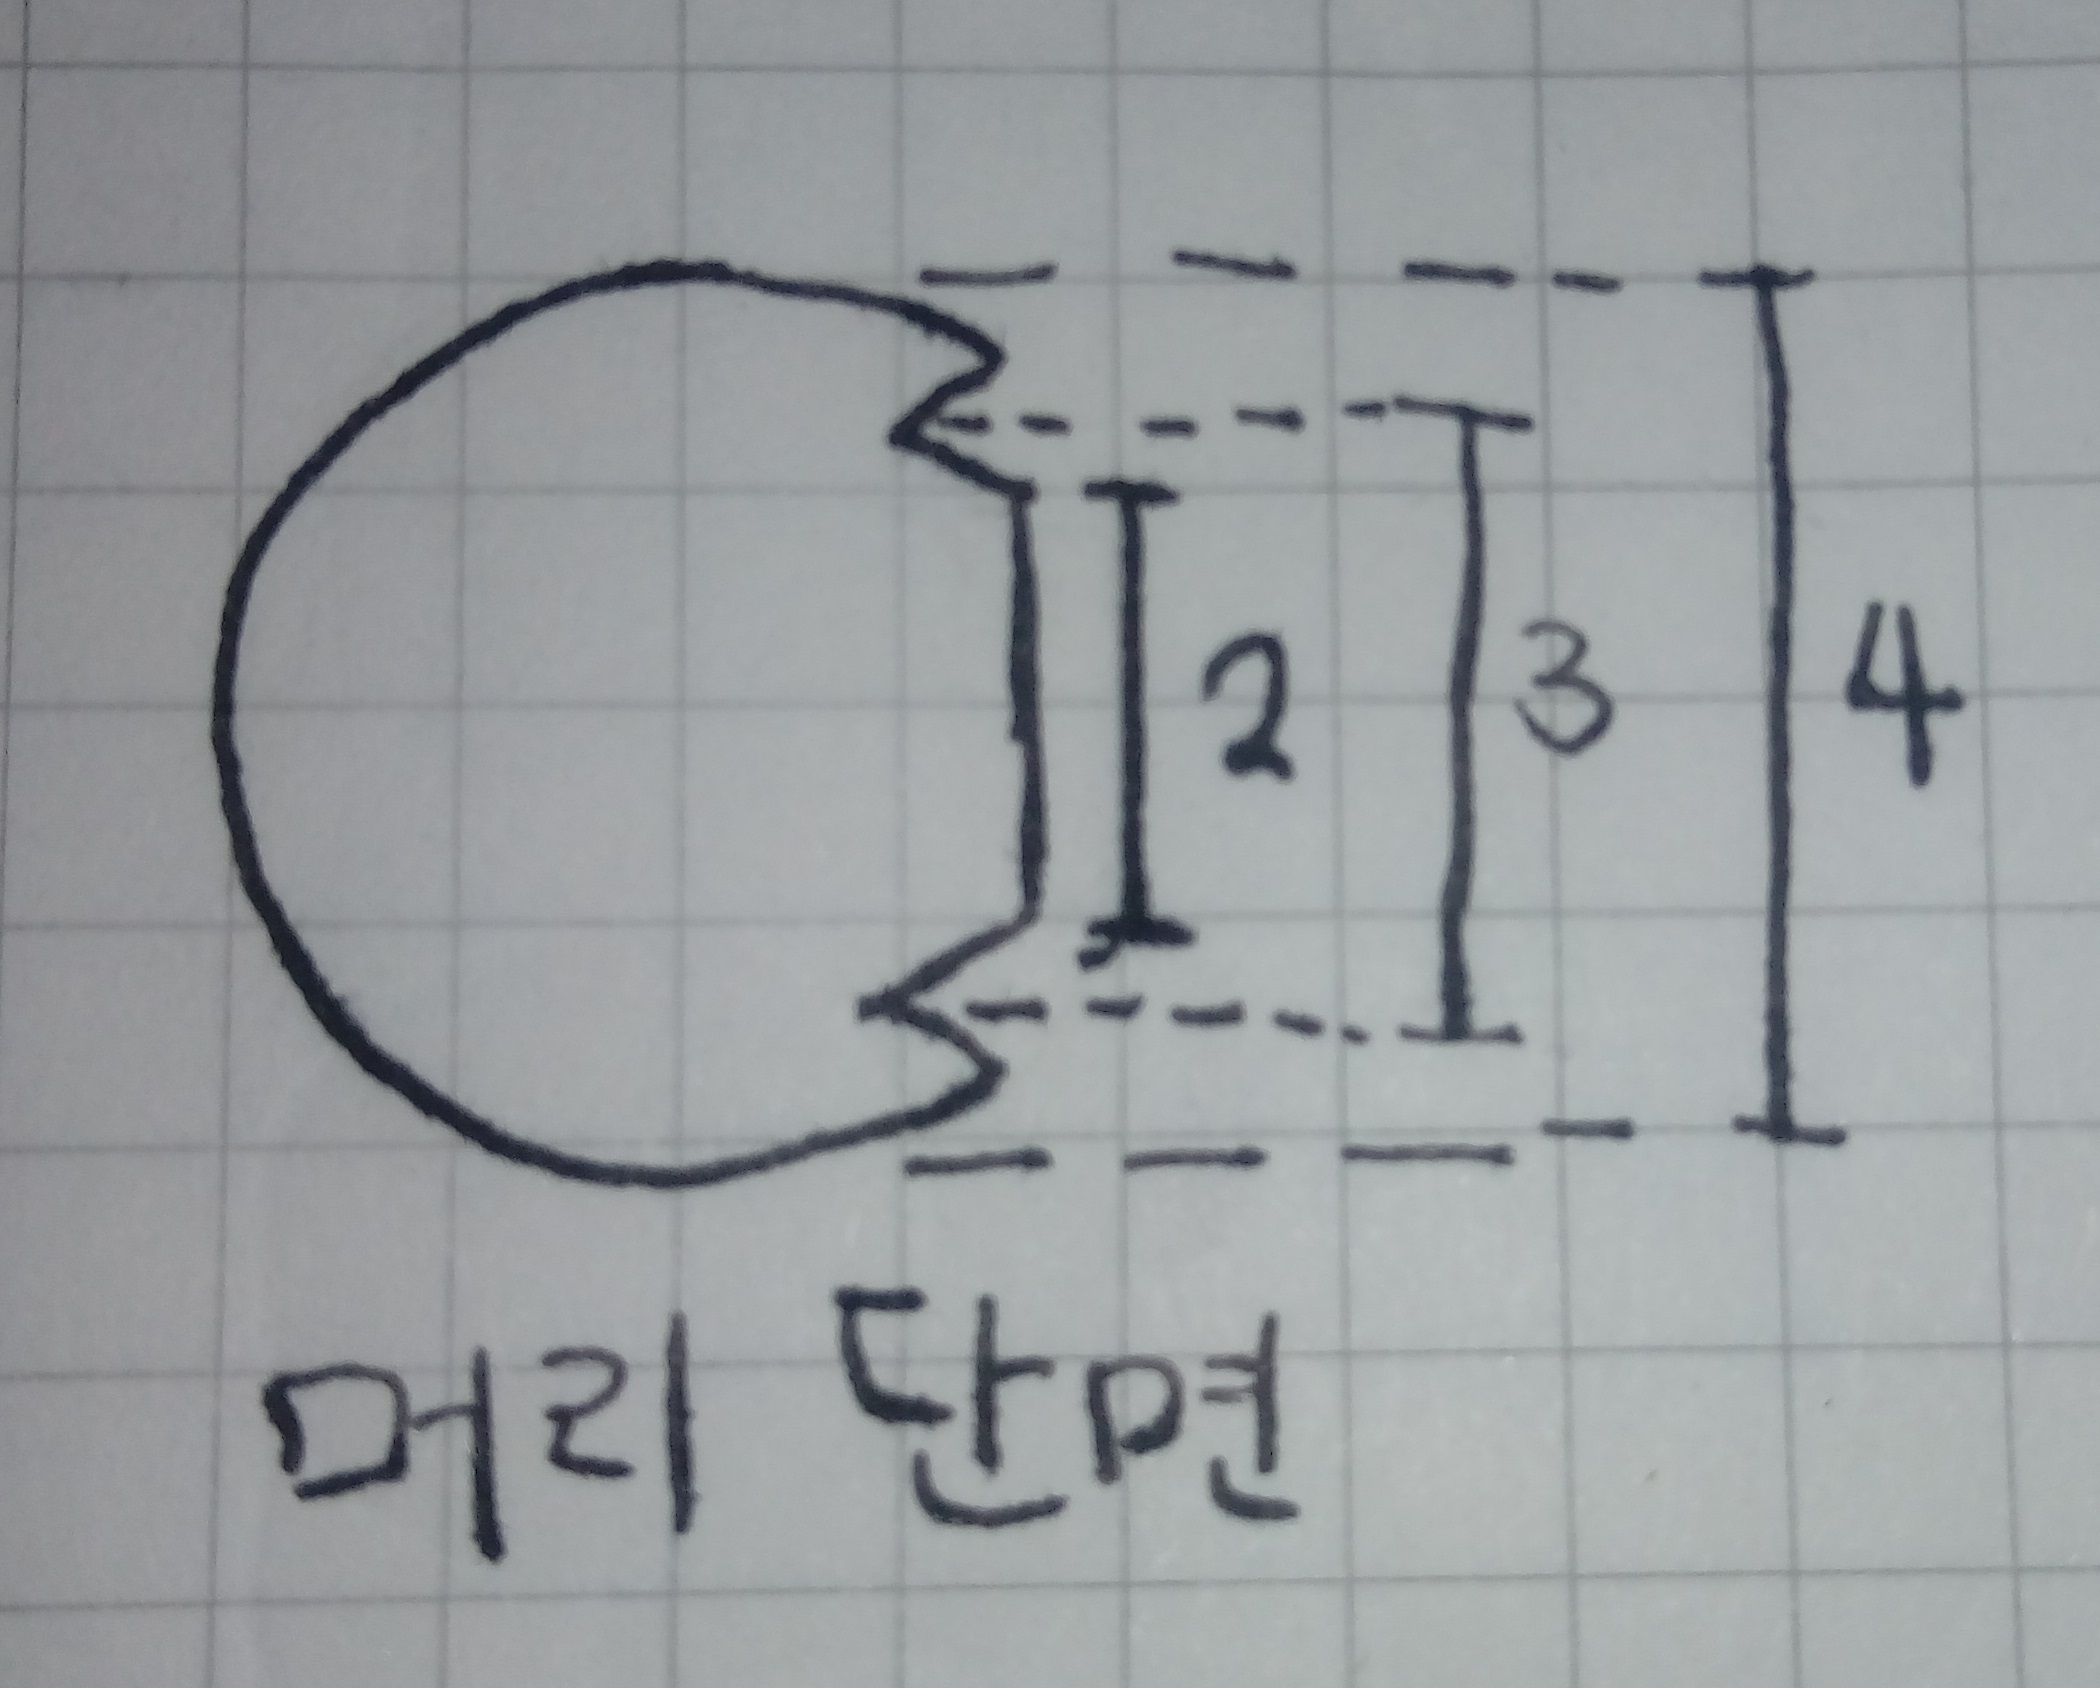 2 3 4
머리 단면